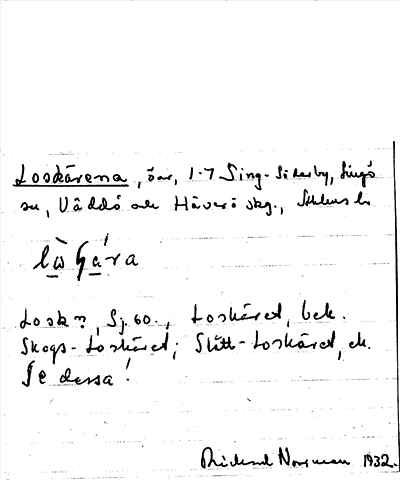 Loskärena, öar, 1-7 Sing-Söderby, Singö
sn, Väddö och Häverö skg., Sthlms l.
Losk?, Sj. 60., Loskäret, bek.
Skogs-Loskäret; Slätt-Loskäret, ek.
Se dessa!
Rickard Norrman 1932.